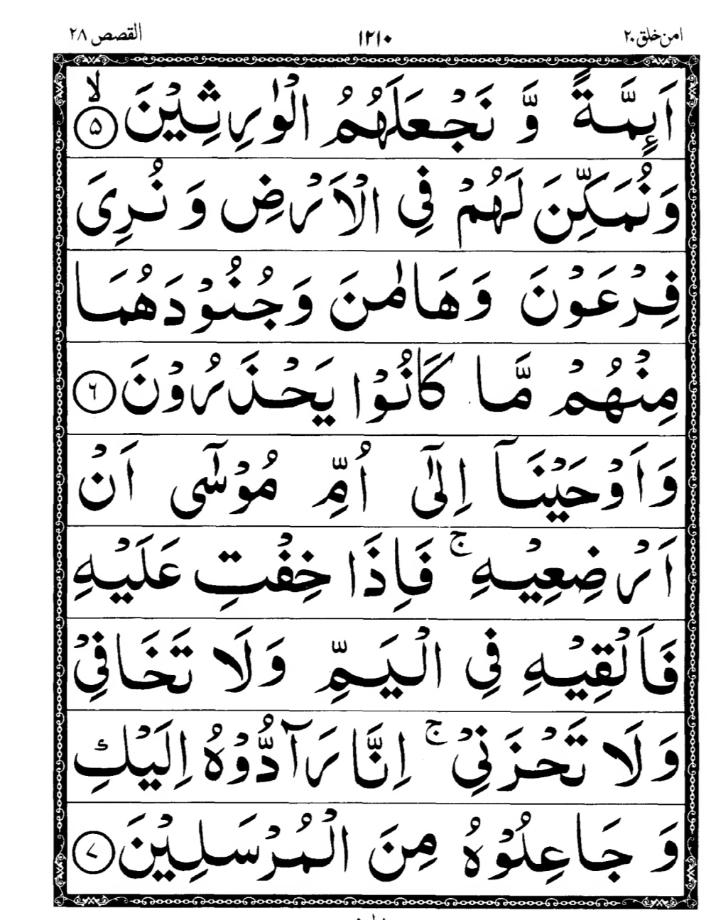 امن خلق ۲۰ ۱۲۱۰ القصص ۲۸
اَىِٕمَّةً وَّ نَجْعَلَهُمُ الْوٰرِثِيْنَ ۙ۵
وَنُمَكِّنَ لَهُمْ فِي الْاَرْضِ وَ نُرِيَ
فِرْعَوْنَ وَهَامٰنَ وَجُنُوْدَهُمَا
مِنْهُمْ مَّا كَانُوْا يَحْذَرُوْنَ ۶
وَاَوْحَيْنَآ اِلٰٓى اُمِّ مُوْسٰٓى اَنْ
اَرْضِعِيْهِ ۚ فَاِذَا خِفْتِ عَلَيْهِ
فَاَلْقِيْهِ فِي الْيَمِّ وَلَا تَخَافِيْ
وَلَا تَحْزَنِيْ ۚ اِنَّا رَآدُّوْهُ اِلَيْكِ
وَ جَاعِلُوْهُ مِنَ الْمُرْسَلِيْنَ ۷